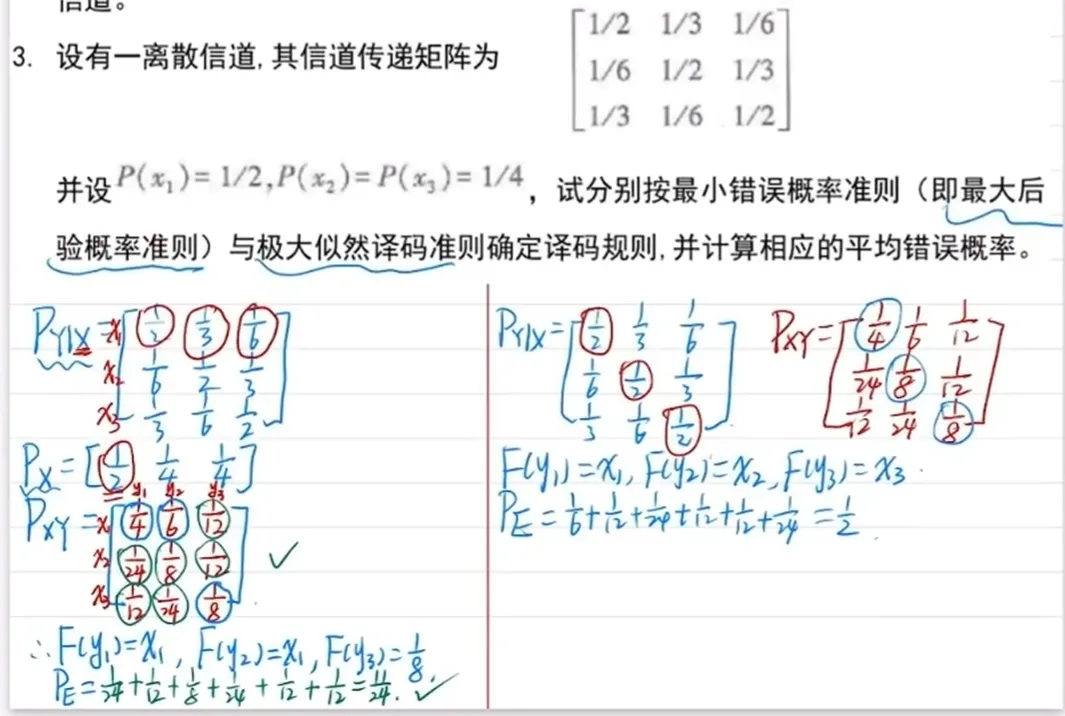 信道。
3. 设有一离散信道,其信道传递矩阵为
1/2 1/3 1/6
1/6 1/2 1/3
1/3 1/6 1/2
并设 P(x₁)= 1/2,P(x₂)= P(x₃)= 1/4 ，试分别按最小错误概率准则（即最大后
验概率准则）与极大似然译码准则确定译码规则,并计算相应的平均错误概率。
P_{Y|X} =
x₁ 1/2 1/3 1/6
x₂ 1/6 1/2 1/3
x₃ 1/3 1/6 1/2
P_X = [1/2 1/4 1/4]
y₁ y₂ y₃
P_{XY} =
x₁ 1/4 1/6 1/12
x₂ 1/24 1/8 1/12
x₃ 1/12 1/24 1/8
✓
∴ F(y₁)=x₁, F(y₂)=x₁, F(y₃)=1/8.
P_E = 1/24+1/12+1/8+1/24+1/12+1/12=11/24. ✓
P_{Y|X} =
1/2 1/3 1/6
1/6 1/2 1/3
1/3 1/6 1/2
P_{XY} =
1/4 1/6 1/12
1/24 1/8 1/12
1/12 1/24 1/8
F(y₁)=x₁, F(y₂)=x₂, F(y₃)=x₃.
P_E = 1/6+1/12+1/24+1/12+1/12+1/24=1/2.